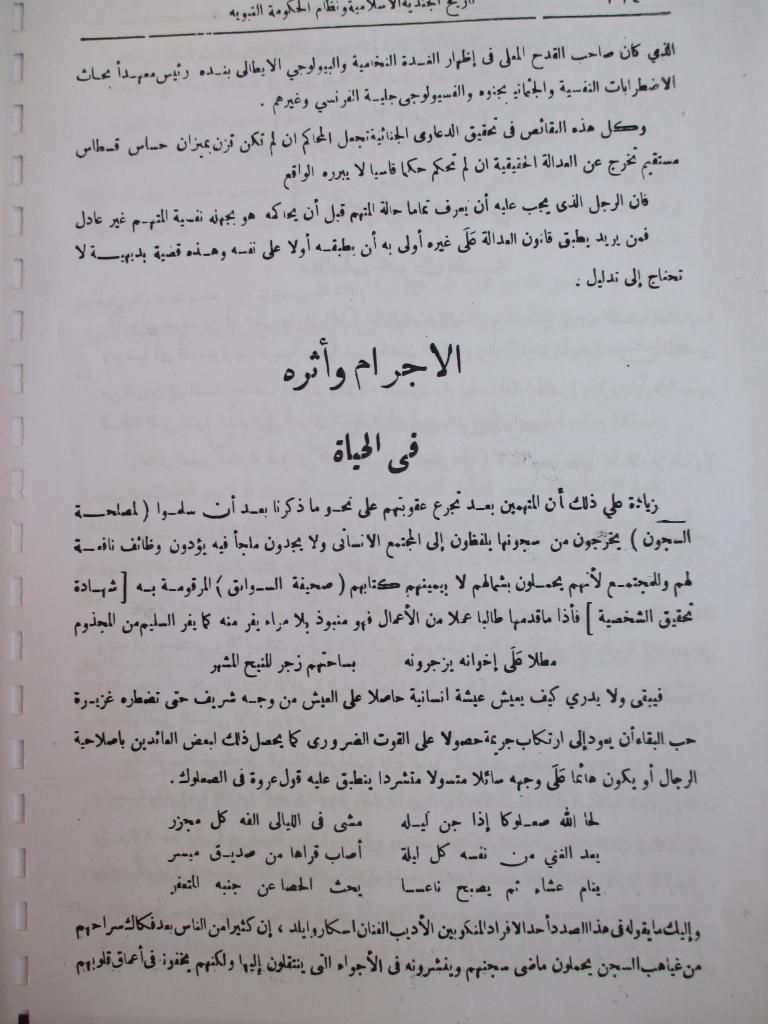 تاريخ الجندية الاسلامية ونظام الحكومة النبويه
الذي كان صاحب القدح المعلى فى إظهار الغدة النخامية والبيولوجي الايطالى بنده رئيس معهد أبحاث
الاضطرابات النفسية والجثمانية بجنوه والفسيولوجى جلية الفرنسي وغيرهم .
وكل هذه النقائص فى تحقيق الدعاوى الجنائية تجعل المحاكم ان لم تكن تزن بميزان حساس قسطاس
مستقيم تخرج عن العدالة الحقيقية ان لم تحكم حكما قاسيا لا يبرره الواقع
فان الرجل الذى يجب عليه أن يعرف تماما حالة المتهم قبل أن يحاكمه هو بجهله نفسية المتهم غير عادل
فمن يريد يطبق قانون العدالة على غيره أولى به أن يطبقه أولا على نفسه وهذه قضية بديهية لا
تحتاج إلى تدليل .
الاجرام وأثره
فى الحياة
زيادة على ذلك أن المتهمين بعد تجرع عقوبتهم على نحو ما ذكرنا بعد أن سلموا ( لمصلحة
السجون ) يخرجون من سجونها يلفظون إلى المجتمع الانسانى ولا يجدون ملجأ فيه يؤدون وظائف نافعة
لهم وللمجتمع لأنهم يحملون بشمالهم لا بيمينهم كتابهم ( صحيفة السوابق ) المرقومة به [ شهادة
تحقيق الشخصية ] فأذا ماقدمها طالبا عملا من الأعمال فهو منبوذ بلا مراء يفر منه كما يفر السليم من المجذوم
مطلا على إخوانه يزجرونه بساحتهم زجر المنيح المشهر
فيبقى ولا يدري كيف يعيش عيشة انسانية حاصلا على العيش من وجه شريف حتى تضطره غريزة
حب البقاء أن يعود إلى ارتكاب جريمة حصولا على القوت الضرورى كما يحصل ذلك لبعض العائدين باصلاحية
الرجال أو يكون هائما على وجهه سائلا متسولا متشردا ينطبق عليه قول عروة فى الصعلوك .
لحا الله صعلوكا إذا جن ليله مشى فى الليالى الفه كل مجزر
يعد الغني من نفسه كل ليلة أصاب قراها من صديق ميسر
ينام عشاء ثم يصبح ناعسا يحث الحصا عن جنبه المتعفر
وإليك ما يقوله فى هذا الصدد أحد الافراد المنكوبين الأديب الفنان اسكار وايلد ، إن كثيرا من الناس بعد فكاك سراحهم
من غياهب السجن يحملون ماضى سجنهم وينشرونه فى الأجواء التى ينتقلون إليها ولكنهم يخفونه فى أعماق قلوبهم